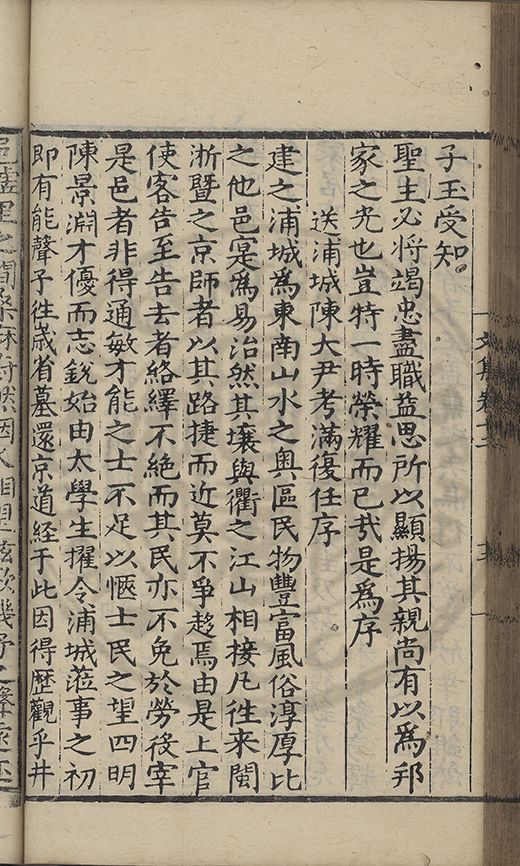 子玉受知
聖主必將竭忠盡職益思所以顯揚其親尚有以為邦
家之光也豈特一時榮耀而已哉是為序
送浦城陳大尹考滿復任序
建之浦城為東南山水之奧區民物豐富風俗淳厚比
之他邑寔為易治然其壤與衢之江山相接凡徃來閩
浙暨之京師者以其路捷而近莫不爭趍焉由是上官
使客告至告去者絡繹不絶而其民亦不免於勞役宰
是邑者非得通敏才能之士不足以愜士民之望四明
陳景淵才優而志銳始由太學生擢令浦城蒞事之初
即有能聲予徃歳省墓還京道経于此因得歷觀乎井
邑墟里之間桑麻